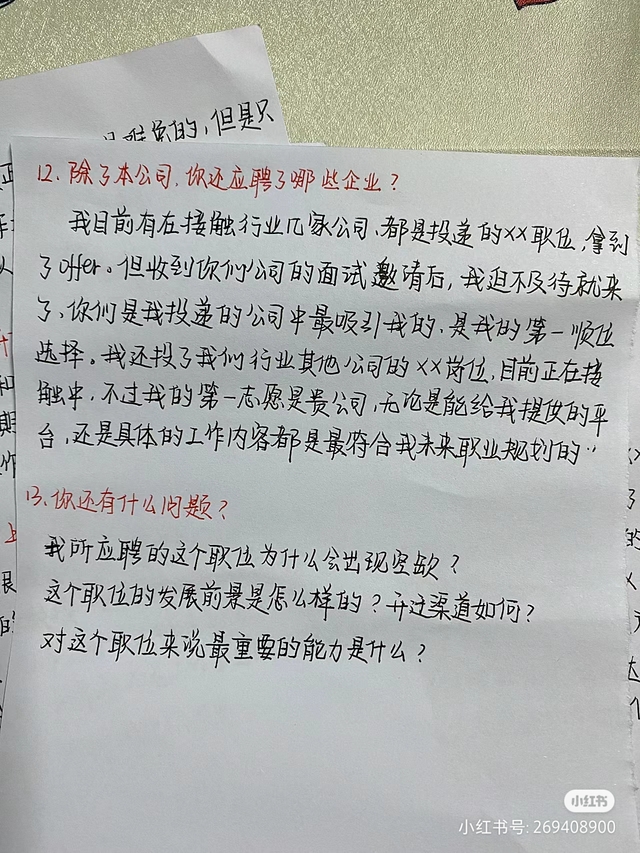 但是只
12. 除了本公司,你还应聘了哪些企业?
我目前有在接触行业几家公司、都是投递的XX职位,拿到
了offer。但收到你们公司的面试邀请后,我迫不及待就来
了、你们是我投递的公司中最吸引我的、是我的第一顺位
选择。我还投了我们行业其他公司的XX岗位,目前正在接
触中,不过我的第一志愿是贵公司,无论是能给我提供的平
台,还是具体的工作内容都是最符合我未来职业规划的"
13、你还有什么问题?
我所应聘的这个职位为什么会出现空缺?
这个职位的发展前景是怎么样的?升迁渠道如何?
对这个职位来说最重要的能力是什么?
小红书
小红书号: 269408900